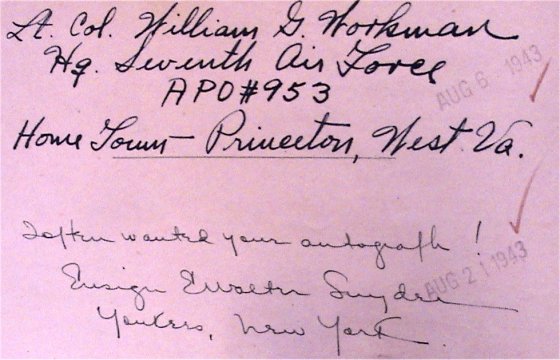 Lt. Col. William G. Workman
Hq. Seventh Air Force
APO #953
AUG 6 1943
Home Town — Princeton, West. Va.
I often wanted your autograph!
Ensign Snyder
AUG 21 1943
Yonkers, New York.